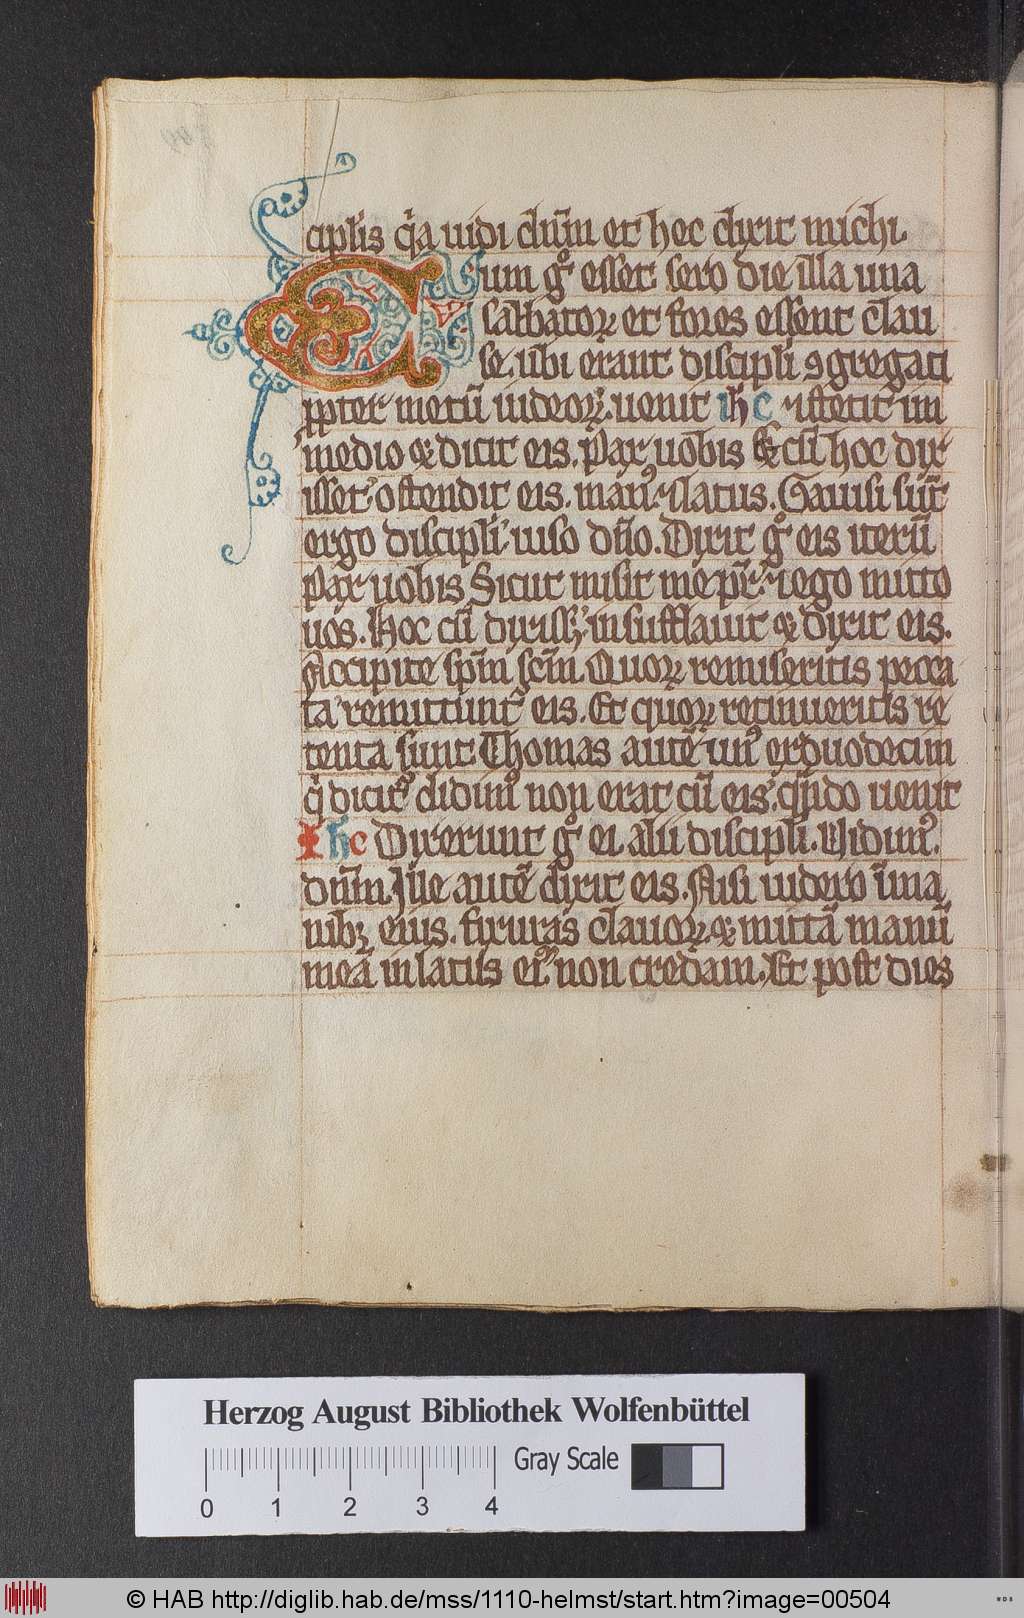 ciplis qͥa uidi dn̄m et hec dixit michi.
Cum gͦ esset sero die illa una
sabbatoꝝ et fores essent clau
se. ubi erant discipli ꝯgregati
ꝓpter metū iudeoꝝ. uenit ihc ⁊ stetit in
medio ⁊ dicit eis. Pax uobis Et cū hoc dix
isset ostendit eis. manꝰ ⁊ latus. Gauisi sūt
ergo discipli uiso dn̄o. Dixit gͦ eis iterū
Pax uobis Sicut misit me pr̄ ⁊ ego mitto
uos. Hoc cū dixissꝫ insufflauit ⁊ dixit eis.
Accipite spm̄ scm̄. Quoꝝ remiseritis pecca
ta remittunt᷑ eis. Et quoꝝ retinueritis re
tenta sunt. Thomas autē unꝰ ex duodecim
qͥ dicit᷑ didimꝰ non erat cū eis qn̄do uenit
Ihc Dixerunt gͦ ei alii discipli. Vidimꝰ
dn̄m. Ille autē dixit eis. Nisi uidero ī ma
nibꝫ eius. fixuras clauoꝝ ⁊ mittā manū
meā in latus eiꝰ non credam. Et post dies
Herzog August Bibliothek Wolfenbüttel
0 1 2 3 4 Gray Scale
© HAB http://diglib.hab.de/mss/1110-helmst/start.htm?image=00504